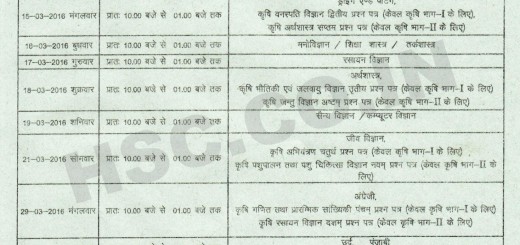 ड्राइंग एण्ड पेंटिंग,
15-03-2016 मंगलवार प्रातः 10.00 बजे से 01.00 बजे तक कृषि वनस्पति विज्ञान द्वितीय प्रश्न पत्र (केवल कृषि भाग-I के लिए),
कृषि अर्थशास्त्र सप्तम प्रश्न पत्र (केवल कृषि भाग-II के लिए)
16-03-2016 बुधवार प्रातः 10.00 बजे से 01.00 बजे तक मनोविज्ञान / शिक्षा शास्त्र / तर्कशास्त्र
17-03-2016 गुरुवार प्रातः 10.00 बजे से 01.00 बजे तक रसायन विज्ञान
अर्थशास्त्र,
18-03-2016 शुक्रवार प्रातः 10.00 बजे से 01.00 बजे तक कृषि भौतिकी एवं जलवायु विज्ञान तृतीय प्रश्न पत्र (केवल कृषि भाग-I के लिए)
कृषि जन्तु विज्ञान अष्टम प्रश्न पत्र (केवल कृषि भाग-II के लिए)
19-03-2016 शनिवार प्रातः 10.00 बजे से 01.00 बजे तक सैन्य विज्ञान /कम्प्यूटर विज्ञान
जीव विज्ञान,
21-03-2016 सोमवार प्रातः 10.00 बजे से 01.00 बजे तक कृषि अभियंत्रण चतुर्थ प्रश्न पत्र (केवल कृषि भाग-I के लिए)
कृषि पशुपालन तथा पशु चिकित्सा विज्ञान नवम् प्रश्न पत्र (केवल कृषि भाग-II के
लिए)
अंग्रेजी,
29-03-2016 मंगलवार प्रातः 10.00 बजे से 01.00 बजे तक कृषि गणित तथा प्रारम्भिक सांख्यिकी पंचम् प्रश्न पत्र (केवल कृषि भाग-I के लिए)
कृषि रसायन विज्ञान दशम् प्रश्न पत्र (केवल कृषि भाग-II के लिए)
उर्दू पंजाबी
HSC.CO.IN